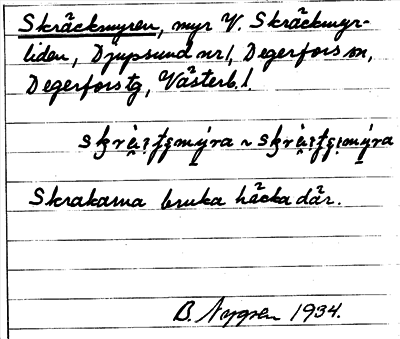 Skräckmyren, myr V. Skräckmyr-
liden, Djupsund nr 1, Degerfors sn,
Degerfors tg, Västerb. l.
Skrakarna bruka häcka där.
B. Nygren 1934.